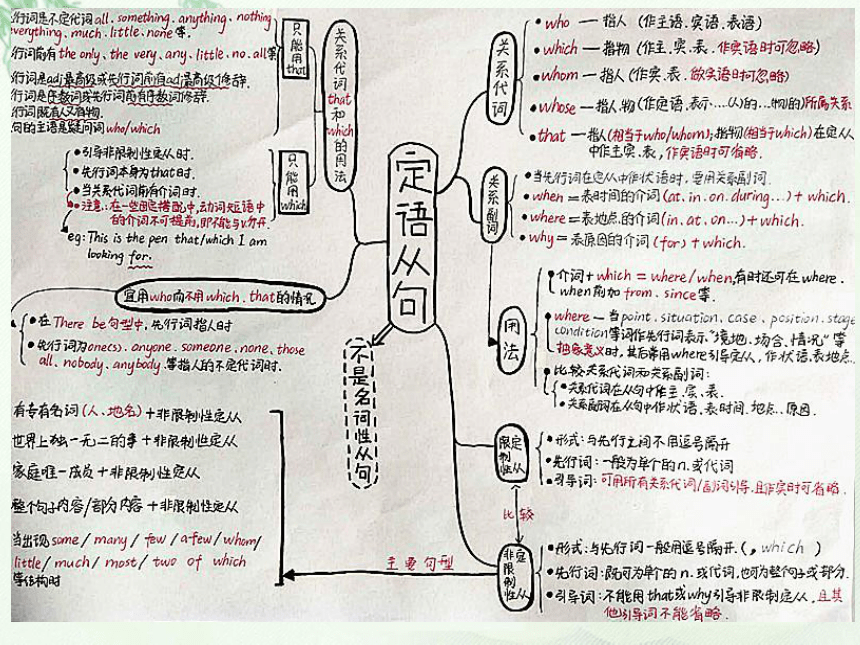 行词是不定代词all、something、anything、nothing
everything、much、little、none等.
行词前有the only、the very、any、little、no、all等
行词是adj最高级或先行词前有adj最高级修辞.
行词是序数词或先行词前有序数词修辞.
行词既有人又有物.
句的主语是疑问词who/which
只能用that
关系代词that和which的用法
引导非限制性定从时.
先行词本身为that时.
当关系代词前有介词时.
注意:在一些固定搭配中,动词短语中
的介词不可提前,即不能与v.分开.
eg: This is the pen that/which I am
looking for.
只能用which
宜用who而不用which、that的情况
在There be句型中,先行词指人时
先行词为one(s)、anyone、someone、none、those
all、nobody、anybody、等指人的不定代词时.
定语从句
不是名词性从句
关系代词
who — 指人 (作主语、宾语、表语)
which — 指物 (作主、宾、表、作宾语时可忽略)
whom — 指人 (作宾、表、做宾语时可忽略)
whose — 指人.物 (作定语、表示...(人)的...物的)所属关系
that — 指人(相当于who/whom);指物(相当于which)在定从
中作主、宾、表,作宾语时可省略.
关系副词
当先行词在定从中作状语时,要用关系副词.
when = 表时间的介词(at、in、on、during...) + which.
where = 表地点的介词(in、at、on...) + which.
why = 表原因的介词 (for) + which.
用法
介词 + which = where/when,有时还可在where、
when前加from、since等.
where — 当point、situation、case、position、stage
condition等词作先行词表示“境地、场合、情况”等
抽象意义时,其后常用where引导定从,作状语、表地点.
比较关系代词和关系副词:
关系代词在从句中作主、宾、表.
关系副词在从句中作状语、表时间、地点、原因.
限制性定从
形式:与先行主词不用逗号隔开
先行词:一般为单个的n.或代词
引导词:可用所有关系代词/副词引导.且作宾时可省略.
比较
非限制性定从
形式:与先行词一般用逗号隔开.(, which )
先行词:既可为单个的n.或代词,也可为整个句子或部分.
引导词:不能用that或why引导非限制定从,且其
他引导词不能省略.
主要句型
有专有名词(人、地名)+非限制性定从
世界上独一无二的事+非限制性定从
家庭唯一成员+非限制性定从
整个句子内容/部分内容+非限制性定从
当出现some/ many/ few/ a few/ whom/
little/ much/ most/ two of which
等结构时